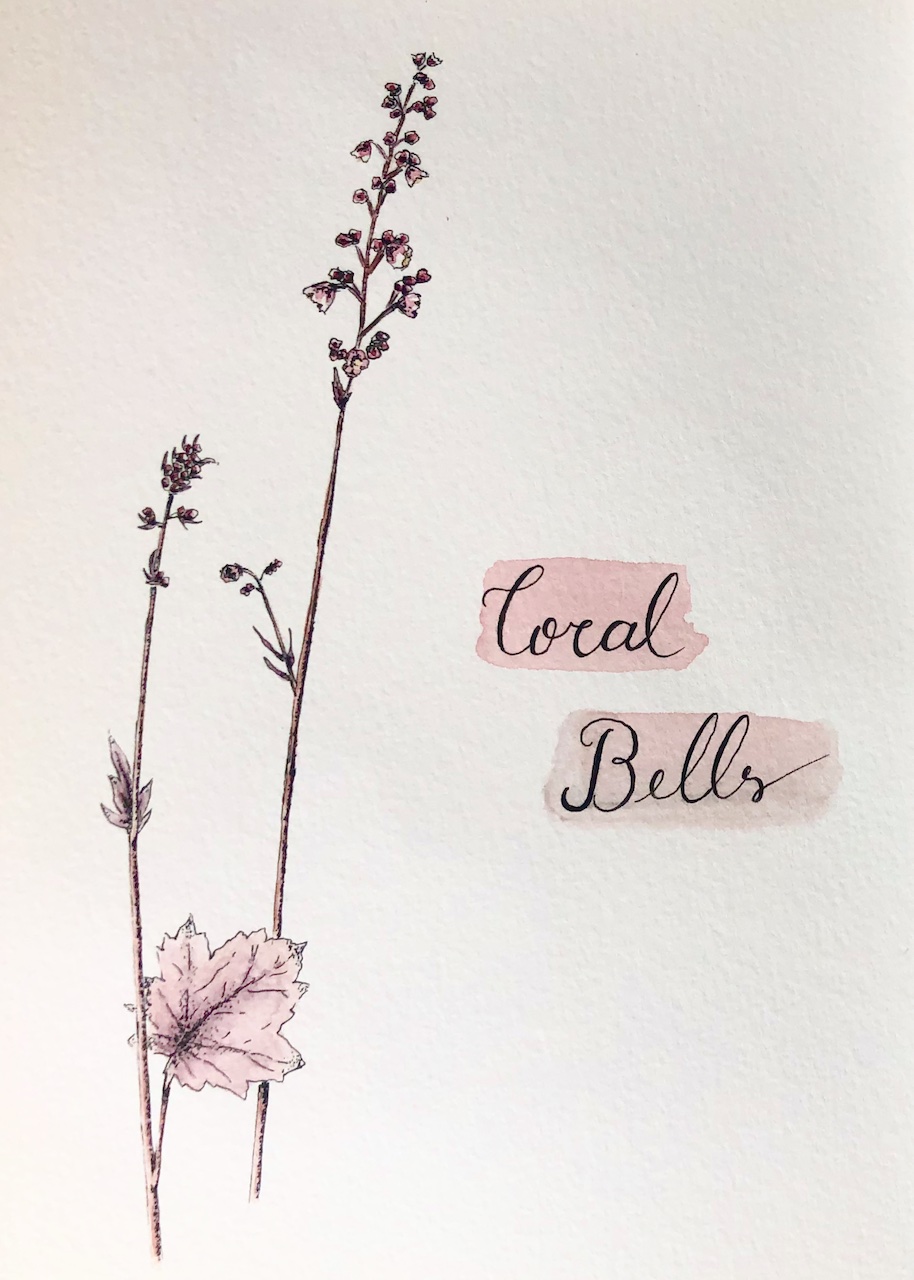 Coral
Bells